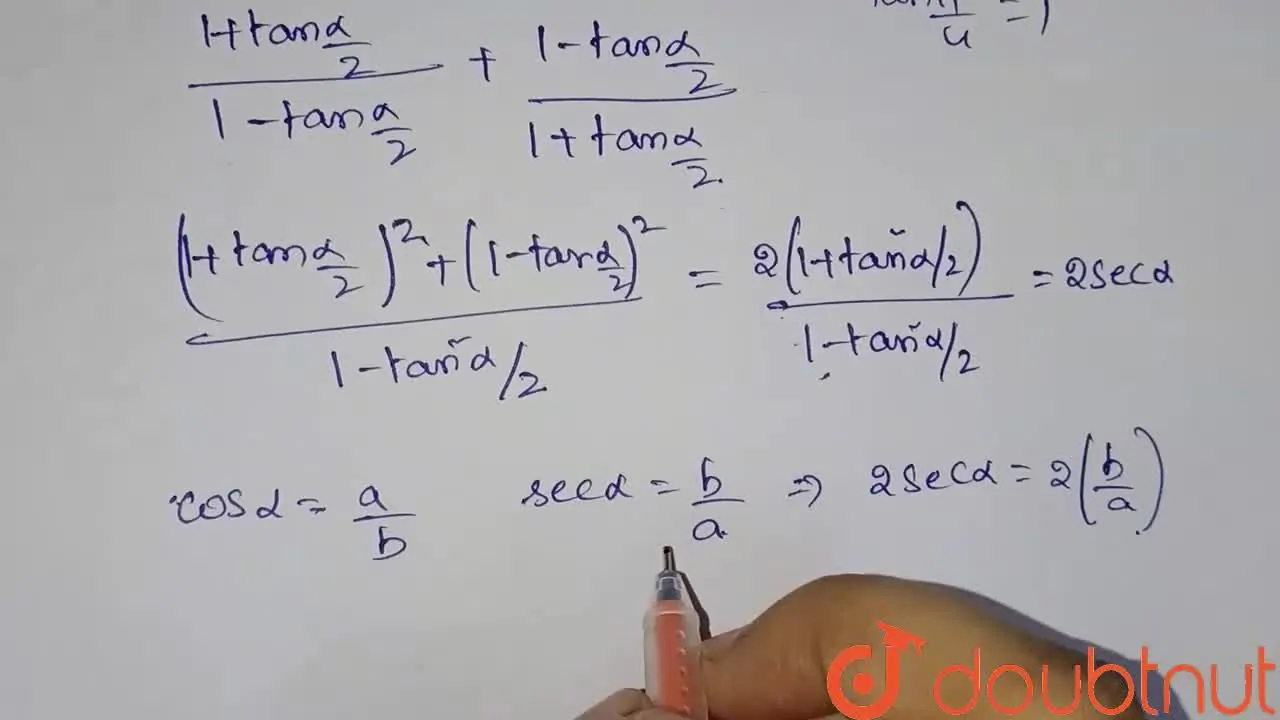 π/4 = 1
1+tan α/2 / 1-tan α/2 + 1-tan α/2 / 1+tan α/2.
(1+tan α/2)² + (1-tan α/2)² / 1-tan²α/2 = 2(1+tan²α/2) / 1-tan²α/2 = 2secα
cosα = a/b secα = b/a ⇒ 2secα = 2(b/a)
doubtnut